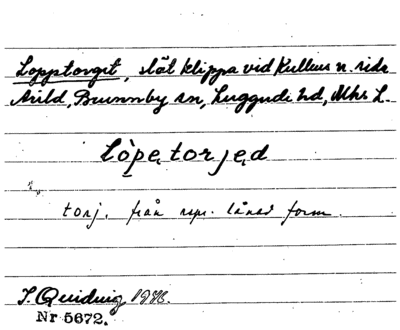 Lopptorget, slät klippa vid Kullens n. sida
Arild, Brunnby sn, Luggude hd, Mhs L.
lòpetorjed
torj. från rspr. lånad form.
1976.
Nr 5672.